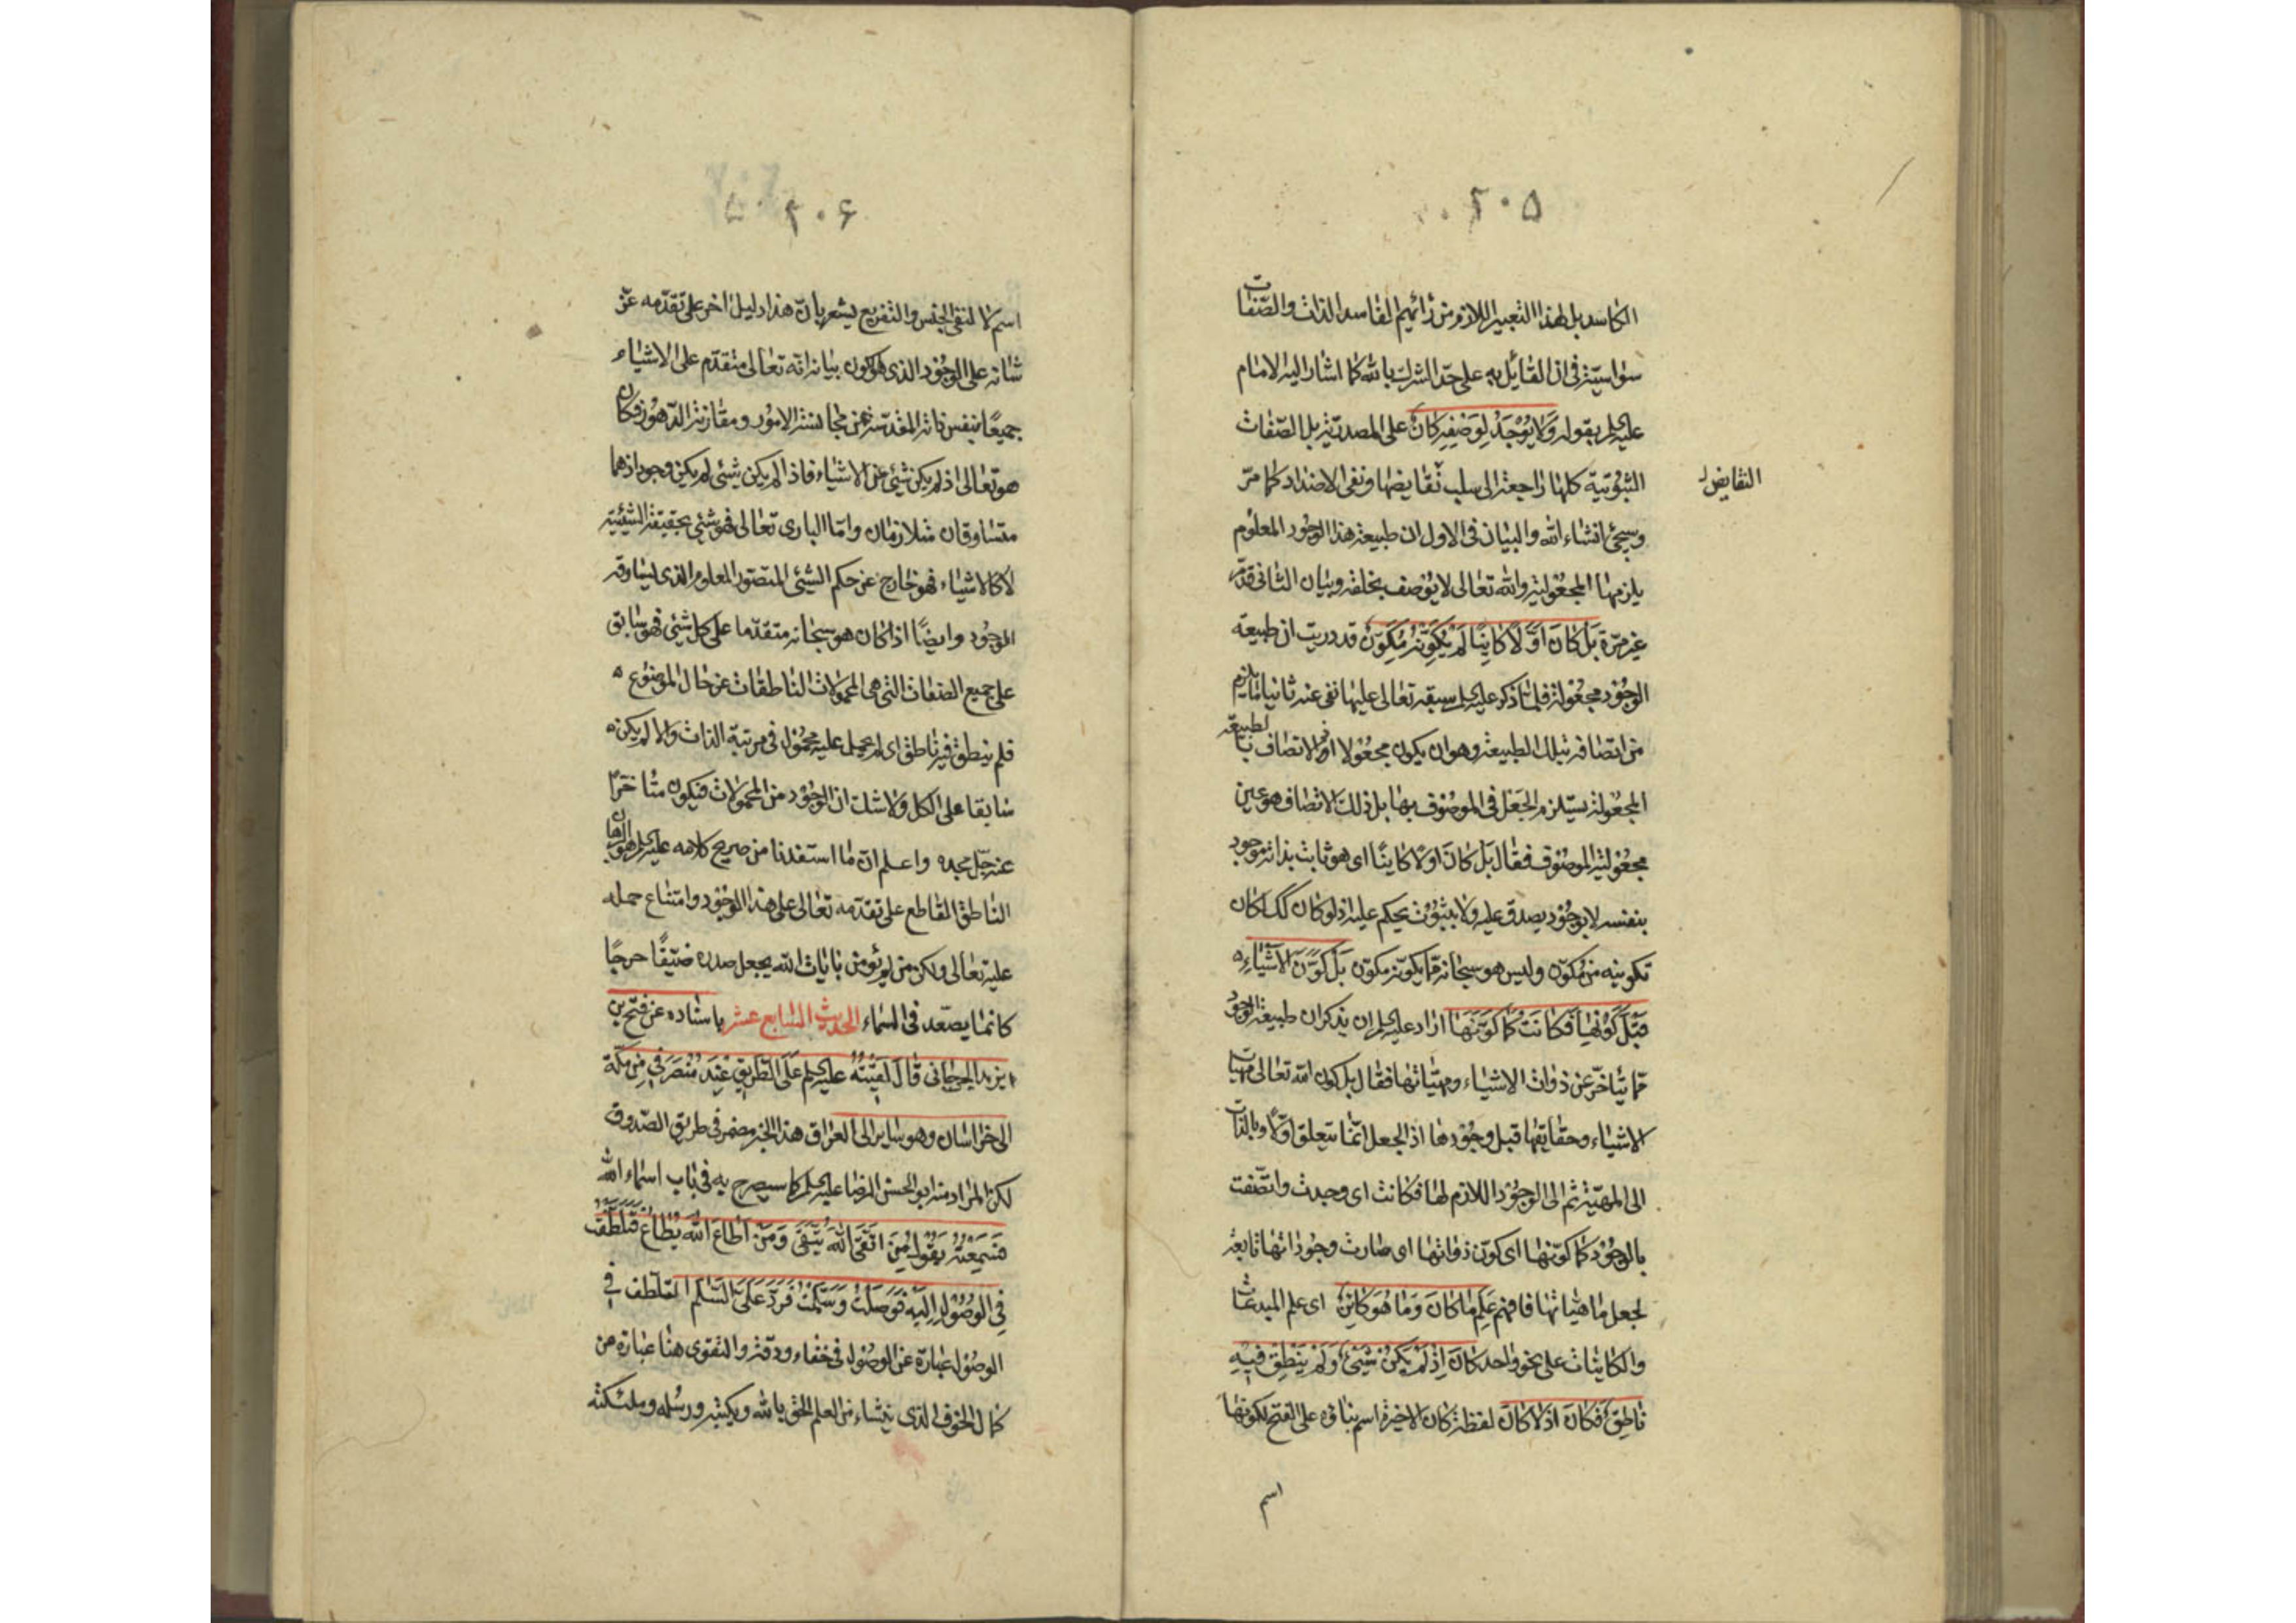 ٢٠٥
الكاسد بل لهذا التعبير اللازم من رأيهم الفاسد الذات والصّفات
سواسيّة في ان القائل به على حدّ الشرك بالله كما اشار اليه الامام
عليه السلم بقوله وَلا يُوجَدُ لِوَصْفِهِ كانَ على المصدريّة بل الصّفات
الثبوتية كلها راجعة الى سلب نقايضها ونفى الاضداد كما مرّ
النقايض
وسيجئ انشاء الله والبيان فى الاول ان طبيعة هذا الوجود المعلوم
يلزمها المجعولية والله تعالى لا يوصف بخلقه وبيان الثانى قد مرّ
غير مرّة بَل كانَ اَوَّلاً كائِنًا لَمْ يُكَوِّنْهُ مُكَوِّنٌ قد دريت ان طبيعة
الوجود مجعولة فلمّا ذكر عليه السلم سبقه تعالى عليها نفى عنه ثانيا ما يلزم
من اتصافه بتلك الطبيعة وهو ان يكون مجعولا اذ الاتصاف بالطبيعة
المجعولة يستلزم الجَعل فى الموصوف بها بل ذلك الاتصاف هو عين
مجعولية الموصوف فقال بَل كانَ اولاً كاينًا اى هو ثابت بذاته موجود
بنفسه لا بوجود يصدق عليه ولا بثبوت يحكم عليه اذ لو كان كك لكان
تكوينه من مكوّن وليس هو سبحانه مما يكوّنه مكوّن بَلْ كَوَّنَ الاَشْيَاءَ
قَبْلَ كَوْنِهَا فَكانَتْ كَما كَوَّنَهَا اراد عليه السلم ان يذكر ان طبيعة الوجود
مما يتأخر عن ذوات الاشياء ومهيّاتها فقال بل كون الله تعالى مهيات
الاشياء وحقايقها قبل وجودها اذ الجعل انّما يتعلق اوّلاً وبالذات
الى المهيّة ثم الى الوجود اللازم لها فكانت اى وجدت واتّصفت
بالوجود كما كوّنها اى كوّن ذواتها اى صارت وجوداتها تابعة
لجعل ماهياتها فافهم عَلِمَ ما كانَ وَمَا هُوَ كائِنٌ اى علم المبدعات
والكاينات على نحو واحد كانَ اِذْ لَمْ يَكُنْ شَيْئٌ وَلَمْ يَنْطِقْ فيهِ
ناطِقٌ فَكانَ اذ لا كانَ لفظة كان الاخيرة اسم بناؤه على الفتح لكونها
اسم
٢٠۶
اسم لا لنفى الجنس والتفريع يشعر بان هذا دليل اخر على تقدّمه عزّ
شانه على الوجود الذى هو الكون بيانه انّه تعالى متقدّم على الاشياء
جميعًا بنفس ذاته المقدسة عن مجانسة الامور ومقارنة الدّهور فكان
هو تعالى اذ لم يكن شئ من الاشياء فاذا لم يكن شئ لم يكن وجود اذ هما
متساوقان متلازمان وامّا البارى تعالى فهو شئ بحقيقة الشيئية
لا كالاشياء فهو خارج عن حكم الشئ المتصور المعلوم الذى يساوقه
الوجود وايضًا اذا كان هو سبحانه متقدّما على كل شئ فهو سابق
على جميع الصفات التى هى المحمولات الناطقات عن حال الموضوع
فلم ينطق فيه ناطق اى لم يحمل عليه محمول فى مرتبة الذات والا لم يكن
سابقا على الكل ولا شك ان الوجود من المحمولات فيكون متأخرًا
عنه جلّ مجده واعلم ان ما استفدنا من صريح كلامه عليه السلم هو البرهان
الناطق القاطع على تقدّمه تعالى على هذا الوجود وامتناع حمله
عليه تعالى ولكن من لم يؤمن بايات الله يجعل صدره ضيّقًا حرجًا
كانما يصّعد فى السّماء الحديث السّابع عشر باسناده عن فتح بن
يزيد الجرجانى قالَ لَقِيتُهُ عليه السلم عَلَى الطَّريقِ عِنْدَ مُنْصَرَفِى مِنْ مَكّةَ
الى خراسان وهو ساير الى العراق هذا الخبر مضمر فى طريق الصّدوق
لكن المراد منه ابو الحسن الرضا عليه السلم كما سيصرح به فى باب اسماء الله
فَسَمِعْتُهُ يَقُولُ مَنِ اتَّقَى اللهَ يُتَّقى وَمَنْ اَطاعَ اللهَ يُطَاعُ فَتَلَطَّفْتُ
فِى الوُصُولِ اِلَيْهِ فَوَصَلْتُ وَسَلَّمْتُ فَرَدَّ عَلَىَّ السَّلم التلطف فى
الوصول عبارة عن الوصول فى خفاء ودقة والتقوى هنا عبارة عن
كمال الخوف الذى ينشاء من العلم الحق بالله وبكتبه ورسله وملئكته